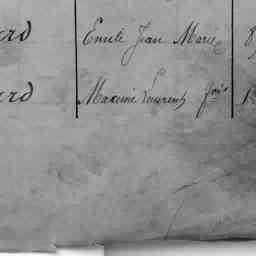 erd Emile Jean Marie 8
erd Maxime Laurent fois 1